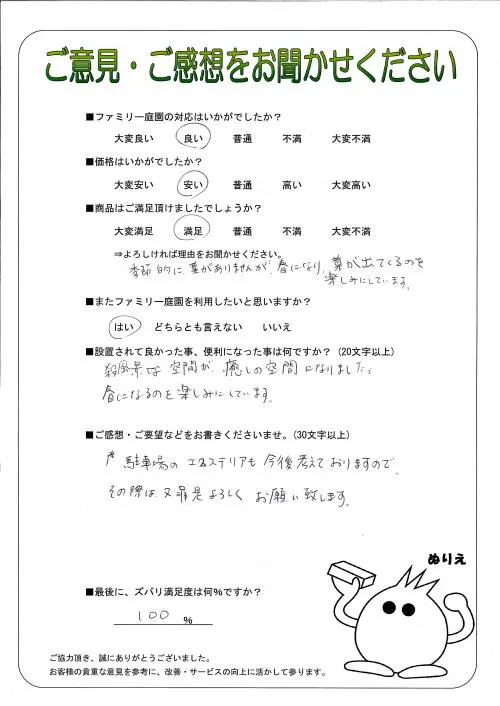 ご意見・ご感想をお聞かせください
■ファミリー庭園の対応はいかがでしたか？
大変良い 良い 普通 不満 大変不満
■価格はいかがでしたか？
大変安い 安い 普通 高い 大変高い
■商品はご満足頂けましたでしょうか？
大変満足 満足 普通 不満 大変不満
⇒よろしければ理由をお聞かせください。
季節的に葉がありませんが、春になり、葉が出てくるのを
楽しみにしています。
■またファミリー庭園を利用したいと思いますか？
はい どちらとも言えない いいえ
■設置されて良かった事、便利になった事は何ですか？（20文字以上）
殺風景な空間が、癒しの空間になりました。
春になるのを楽しみにしています。
■ご感想・ご要望などをお書きくださいませ。（30文字以上）
駐車場のエクステリアも今後考えておりますので、
その際は又是非よろしくお願い致します。
ぬりえ
■最後に、ズバリ満足度は何％ですか？
100 ％
ご協力頂き、誠にありがとうございました。
お客様の貴重な意見を参考に、改善・サービスの向上に活かして参ります。